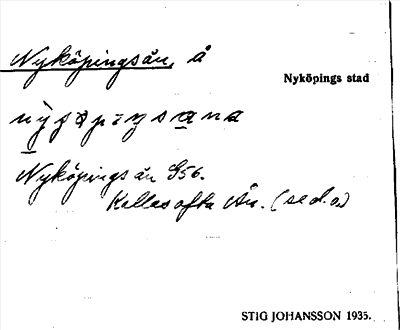 Nyköpingsån, å
Nyköpings stad
Nyköpingsån G56.
Kallas ofta Ån. (se d.o.)
STIG JOHANSSON 1935.